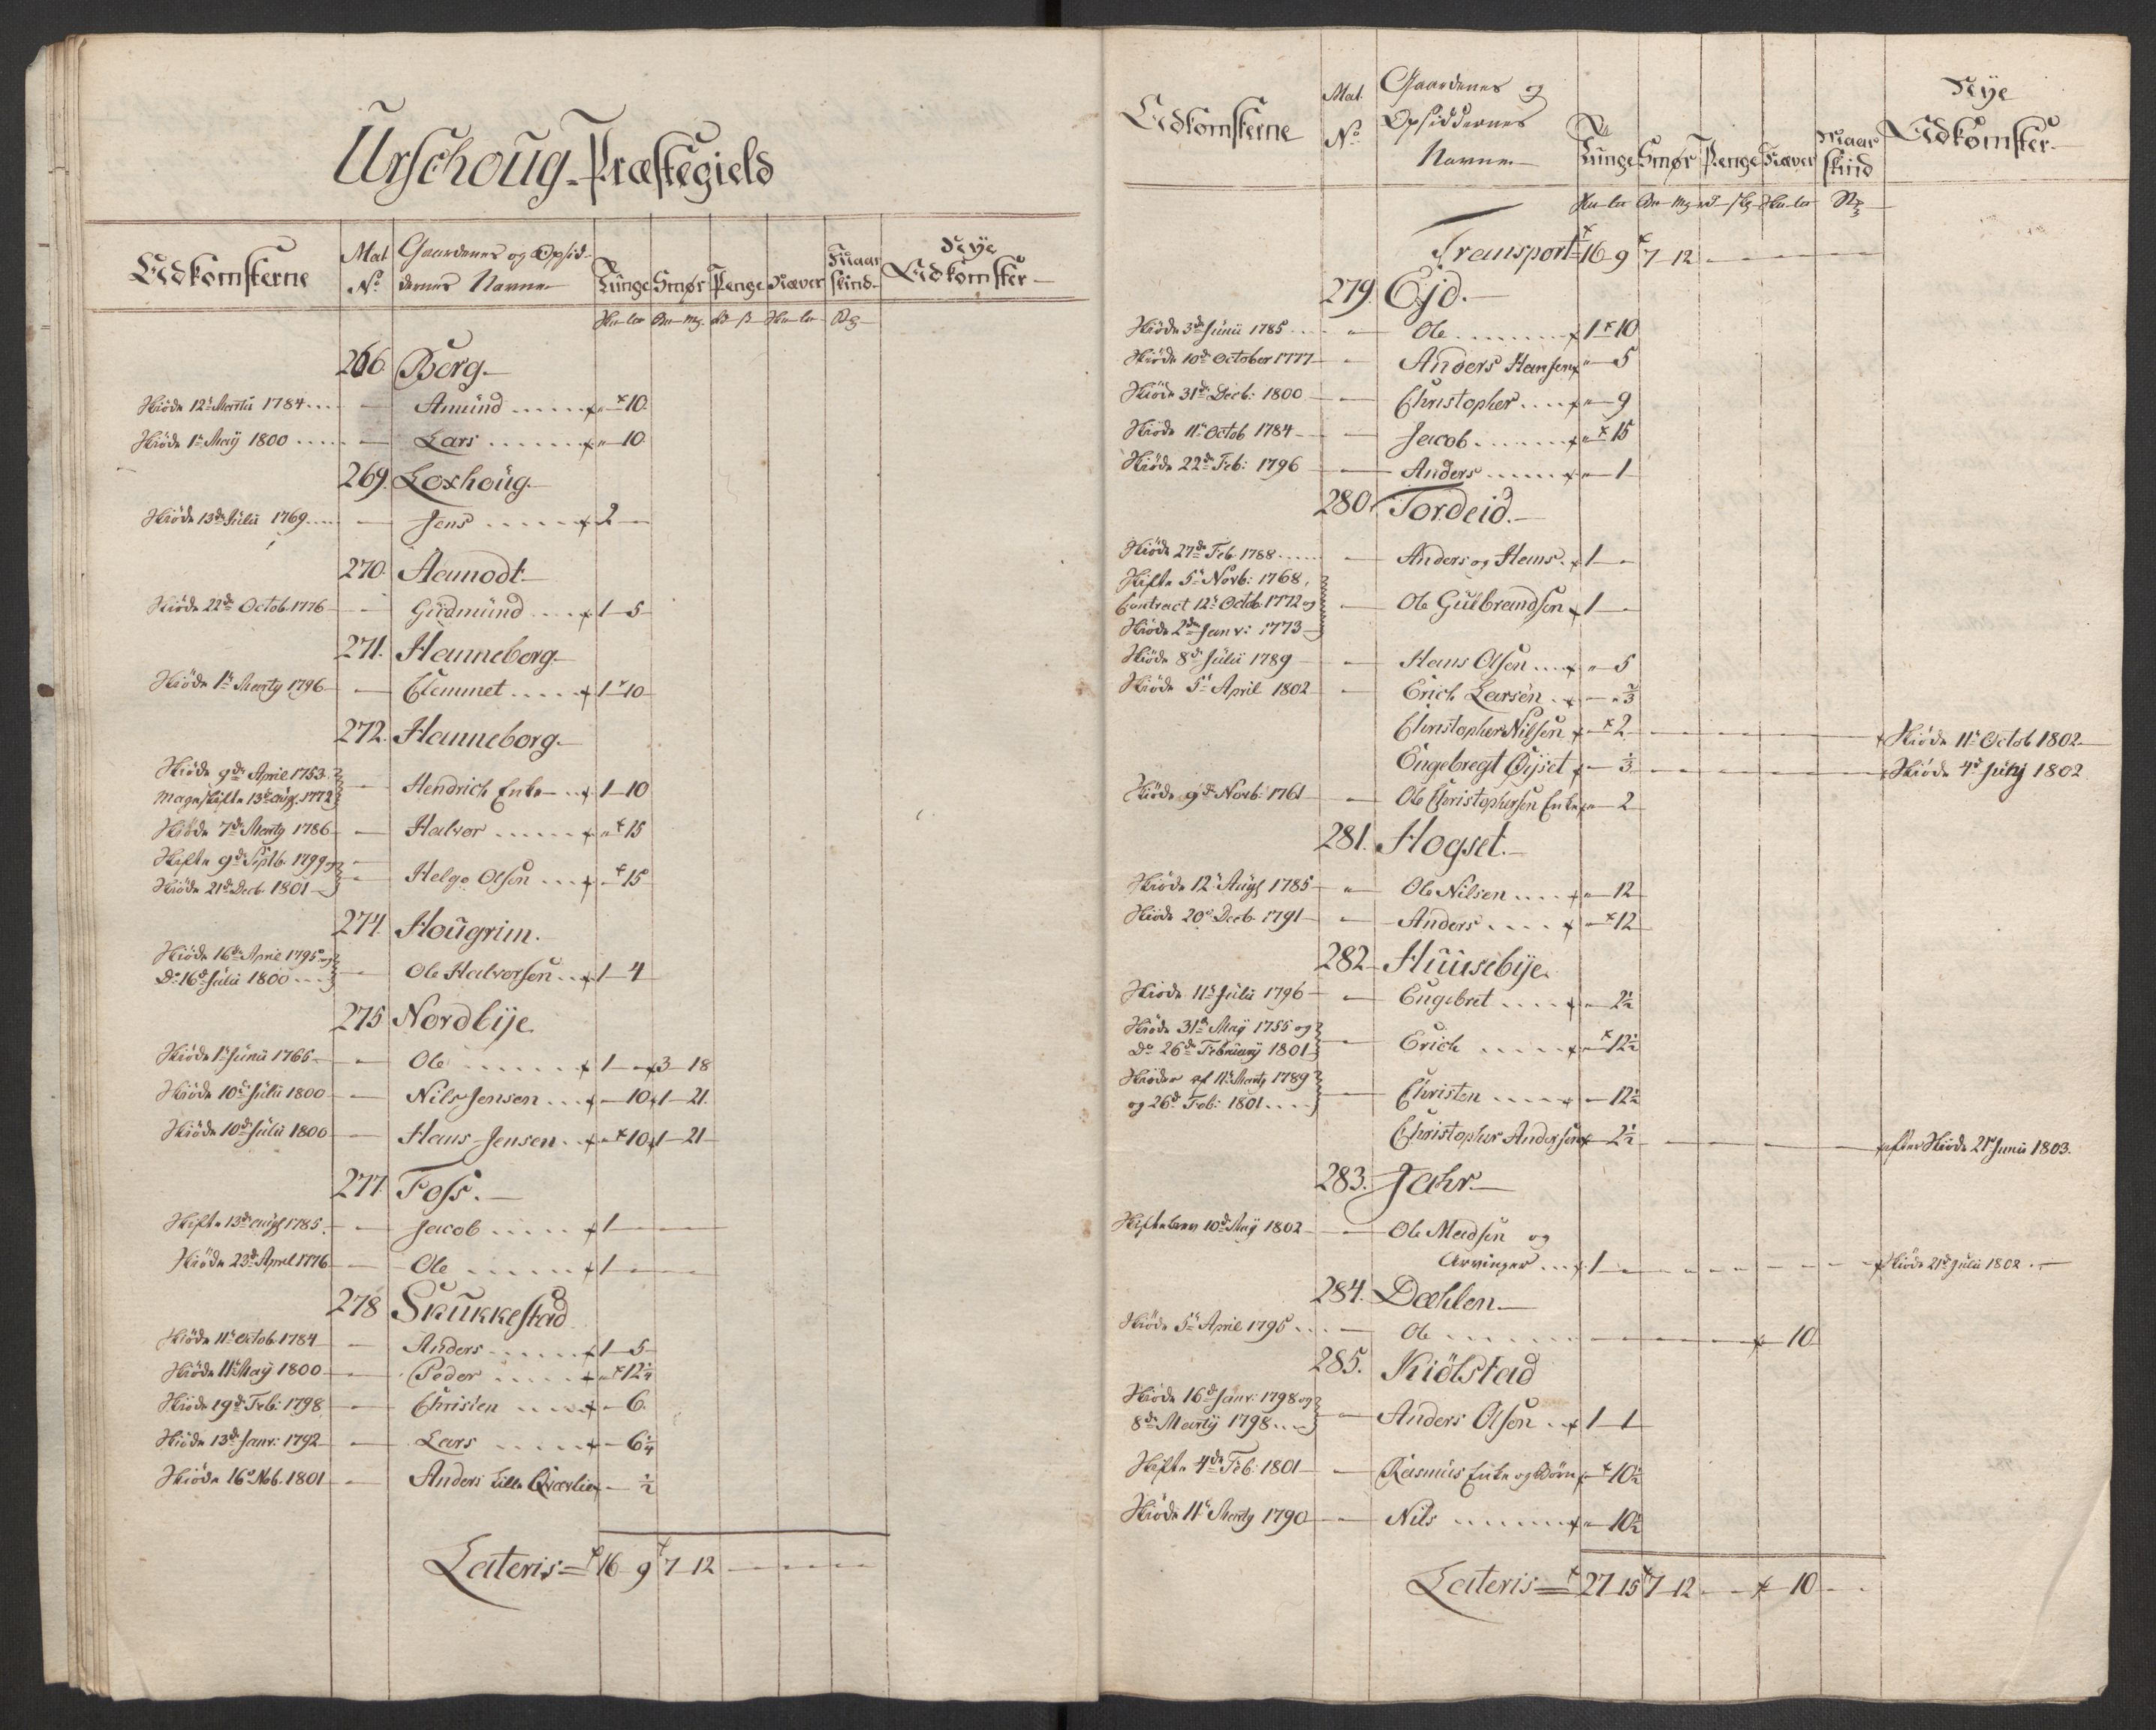 Urschoug Præstegield
Adkomsterne Mat. No. Gaardenes og Opsid- Tunge Smør Penge Ræver Maar Nye
dernes Navne skind Adkomster
Hu—lv Bu—mg. rd—s Hu—lv No.
266 Berg.
Skiøde 12te Martii 1784 — Amund × " — × 10.
Skiøde 1te Maÿ 1800 — Lars × " — 10.
269. Loxhoug.
Skiøde 13de Julii 1769 — Jens × 2 —
270. Aamodt.
Skiøde 22de Octob. 1776 — Gudmund × 1 — 5
271. Hanneborg.
Skiøde 1te Marty 1796 — Clemmet × 1 × 10
272. Hanneborg.
Skiøde 9de April 1753.
Mageskifte 13de Aug. 1772 — Hendrich Enke × 1 — 10
Skiøde 7de Marty 1786 — Halvor × " × 15
Skifte 9de Septb. 1799 og
Skiøde 21de Decb. 1801 — Helge Olsen × — × 15
274. Hougrim.
Skiøde 16de April 1795 og
Do 16de Julii 1800 — Ole Halvorsen × 1 — 4
275 Nordbÿe
Skiøde 1te Junii 1765 — Ole × 1 — × 3 — 18
Skiøde 10de Julii 1800 — Nils Jensen × — 10 × 1 — 21.
Skiøde 10de Julii 1800 — Hans Jensen × " × 10 × 1 — 21
277. Foss.
Skifte 13de Augs 1785. — Jacob × 1 —
Skiøde 23de April 1776 — Ole × 1 —
278 Skukkestad
Skiøde 11te Octob. 1784 — Anders × 1 — 5
Skiøde 11te Maÿ 1800 — Peder × " × 12 1/4
Skiøde 19de Feb: 1798 — Christen × — 6.
Skiøde 13de Janv: 1792 — Lars × — 6 1/4
Skiøde 16de Nob. 1801 — Anders Lille Qværlie × — 1/2
Lateris = × 16 — 9 × 7 — 12 —
Adkomsterne Mat. No. Gaardenes og Opsiddernes Navne Tunge Smør Penge Ræver Maar skind Nye Adkomster
Hu—lv Bu—mg rd—s Hu—lv No.
Transport = × 16 — 9 × 7 — 12 —
279. Ejd.
Skiøde 3de Junii 1785 — Ole × 1 × 10
Skiøde 10de October 1777 — Anders Hansen × " — 5
Skiøde 31de Decb: 1800 — Christopher × " — 9
Skiøde 11te Octob 1784 — Jacob × " × 15
Skiøde 22de Feb: 1796 — Anders × " — 1
280. Tordeid.
Skiøde 27de Feb. 1788 — Anders og Hans × 1 —
Skifte 5te Novb: 1768,
Contract 12te Octob. 1772 og — Ole Gulbrandsen × 1 —
Skiøde 2den Janv: 1773
Skiøde 8de Julii 1789 — Hans Olsen × " — 5
Skiøde 5te April 1802 — Erich Larsen × — " 2/3
Christopher Nilsen × — × 2 — × Skiøde 11te Octob 1802
Engebregt Øÿset × — 1/3 — × Skiøde 4de July 1802
Skiøde 9de Novb: 1761 — Ole Christophersen Enke × " — 2
281. Hogset.
Skiøde 12te Augs 1785 — " Ole Nilsen × " — 12
Skiøde 20de Decb. 1791 — Anders × — × 12
282 Huusebÿe
Skiøde 11te Julii 1796 — Engebret × " — 2 1/2
Skiøde 31te Maÿ 1755 og
Do 26de Februarÿ 1801 — Erich × " × 12 1/2
Skiøder af 11te Marty 1789
og 26de Feb: 1801 — Christen × — 12 1/2
Christopher Andersen × — 2 1/2 — × efter Skiøde 21de Junii 1803.
283. Jahr
Skiftebrev 10de Maÿ 1802 — Ole Madsen og
Arvinger × 1 — × Skiøde 21de Julii 1802.
284. Dæhlen
Skiøde 5te April 1795 — Ole — × — 10
285. Kiølstad
Skiøde 16de Janv: 1798 og
8de Martÿ 1798 — Anders Olsen × 1 — 1
Skifte 4de Feb: 1801 — Rasmus Enke og Børn × — × 10 1/2
Skiøde 11te Marty 1790 — Nils × " — 10 1/2
Lateris = × 27 — 15 × 7 — 12 — × — 10 —